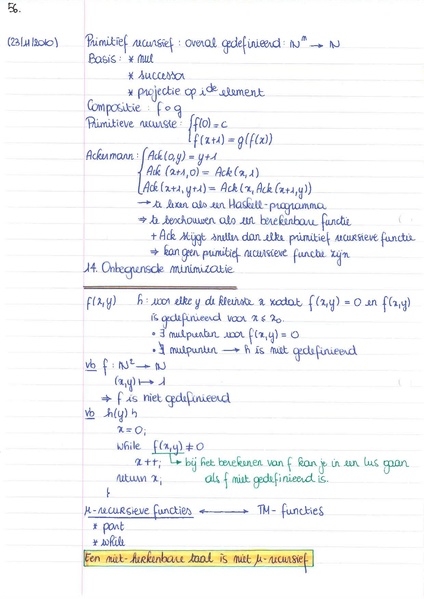 56.
(23/11/2010) Primitief recursief : overal gedefinieerd : ℕᵐ → ℕ
Basis : * nul
* successor
* projectie op iᵈᵉ element
Compositie : f ∘ g
Primitieve recursie : { f(0) = c
f(x+1) = g(f(x))
Ackermann : { Ack(0,y) = y+1
Ack(x+1,0) = Ack(x,1)
Ack(x+1,y+1) = Ack(x, Ack(x+1,y))
→ te lezen als een Haskell-programma
⇒ te beschouwen als een berekenbare functie
+ Ack stijgt sneller dan elke primitief recursieve functie
⇒ kan geen primitief recursieve functie zijn
14. Onbegrensde minimizatie
f(x,y) h : voor elke y de kleinste x zodat f(x,y) = 0 en f(x,y)
is gedefinieerd voor x ≤ x₀.
• ∃ nulpunten voor f(x,y) = 0
• ∄ nulpunten → h is niet gedefinieerd
vb f : ℕ² → ℕ
(x,y) ↦ 1
⇒ f is niet gedefinieerd
vb h(y) {
x = 0;
while f(x,y) ≠ 0
x++; → bij het berekenen van f kan je in een lus gaan
return x; als f niet gedefinieerd is.
}
μ-recursieve functies ↔ TM-functies
* part
* while
Een niet-herkenbare taal is niet μ-recursief